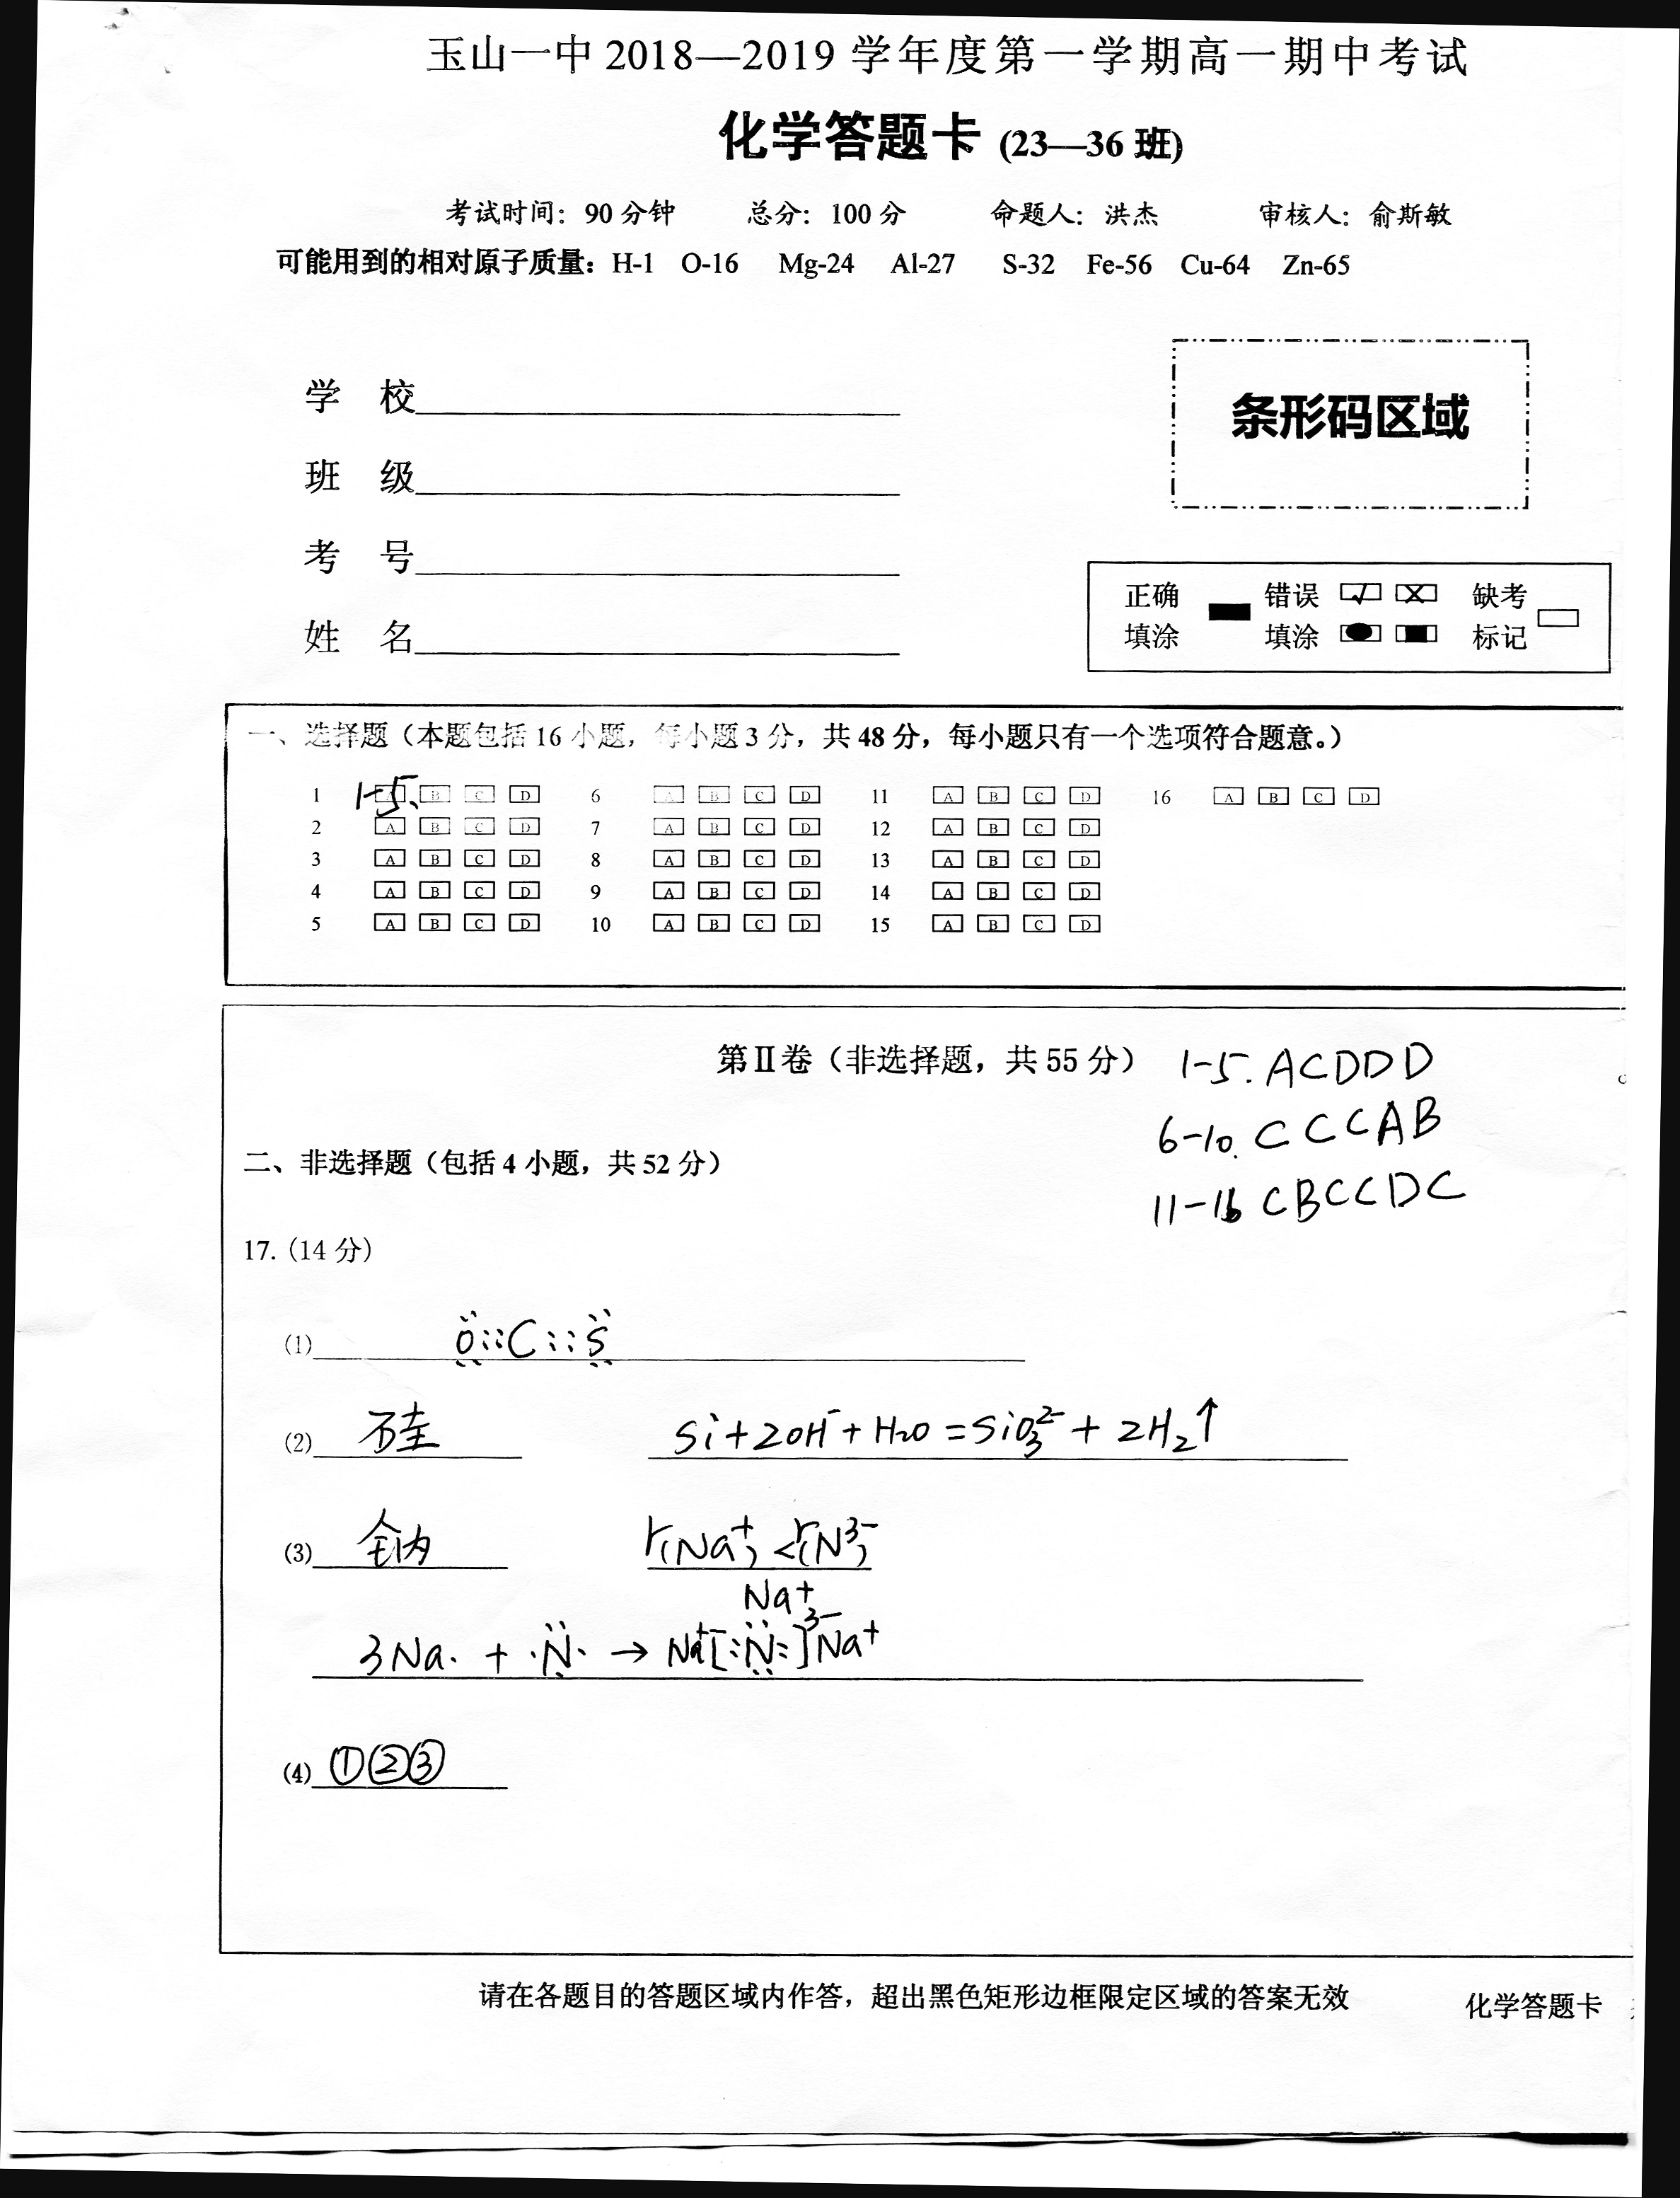 玉山一中 2018—2019 学年度第一学期高一期中考试
化学答题卡 (23—36 班)
考试时间：90 分钟 总分：100 分 命题人：洪杰 审核人：俞斯敏
可能用到的相对原子质量：H-1 O-16 Mg-24 Al-27 S-32 Fe-56 Cu-64 Zn-65
学 校
条形码区域
班 级
考 号
姓 名
正确 错误 缺考
填涂 填涂 标记
一、选择题（本题包括 16 小题，每小题 3 分，共 48 分，每小题只有一个选项符合题意。）
1 1-5、 A B C D 6 A B C D 11 A B C D 16 A B C D
2 A B C D 7 A B C D 12 A B C D
3 A B C D 8 A B C D 13 A B C D
4 A B C D 9 A B C D 14 A B C D
5 A B C D 10 A B C D 15 A B C D
第Ⅱ卷（非选择题，共 55 分） 1-5. ACDDD
6-10. CCCAB
二、非选择题（包括 4 小题，共 52 分）
11-16 CBCCDC
17.（14 分）
(1) O::C::S
(2) 硅 Si+2OH⁻+H₂O=SiO₃²⁻+2H₂↑
(3) 钠 r(Na⁺)<r(N³⁻)
Na⁺
3Na· + ·N· → Na⁺[:N:]³⁻Na⁺
(4) ①②③
请在各题目的答题区域内作答，超出黑色矩形边框限定区域的答案无效 化学答题卡